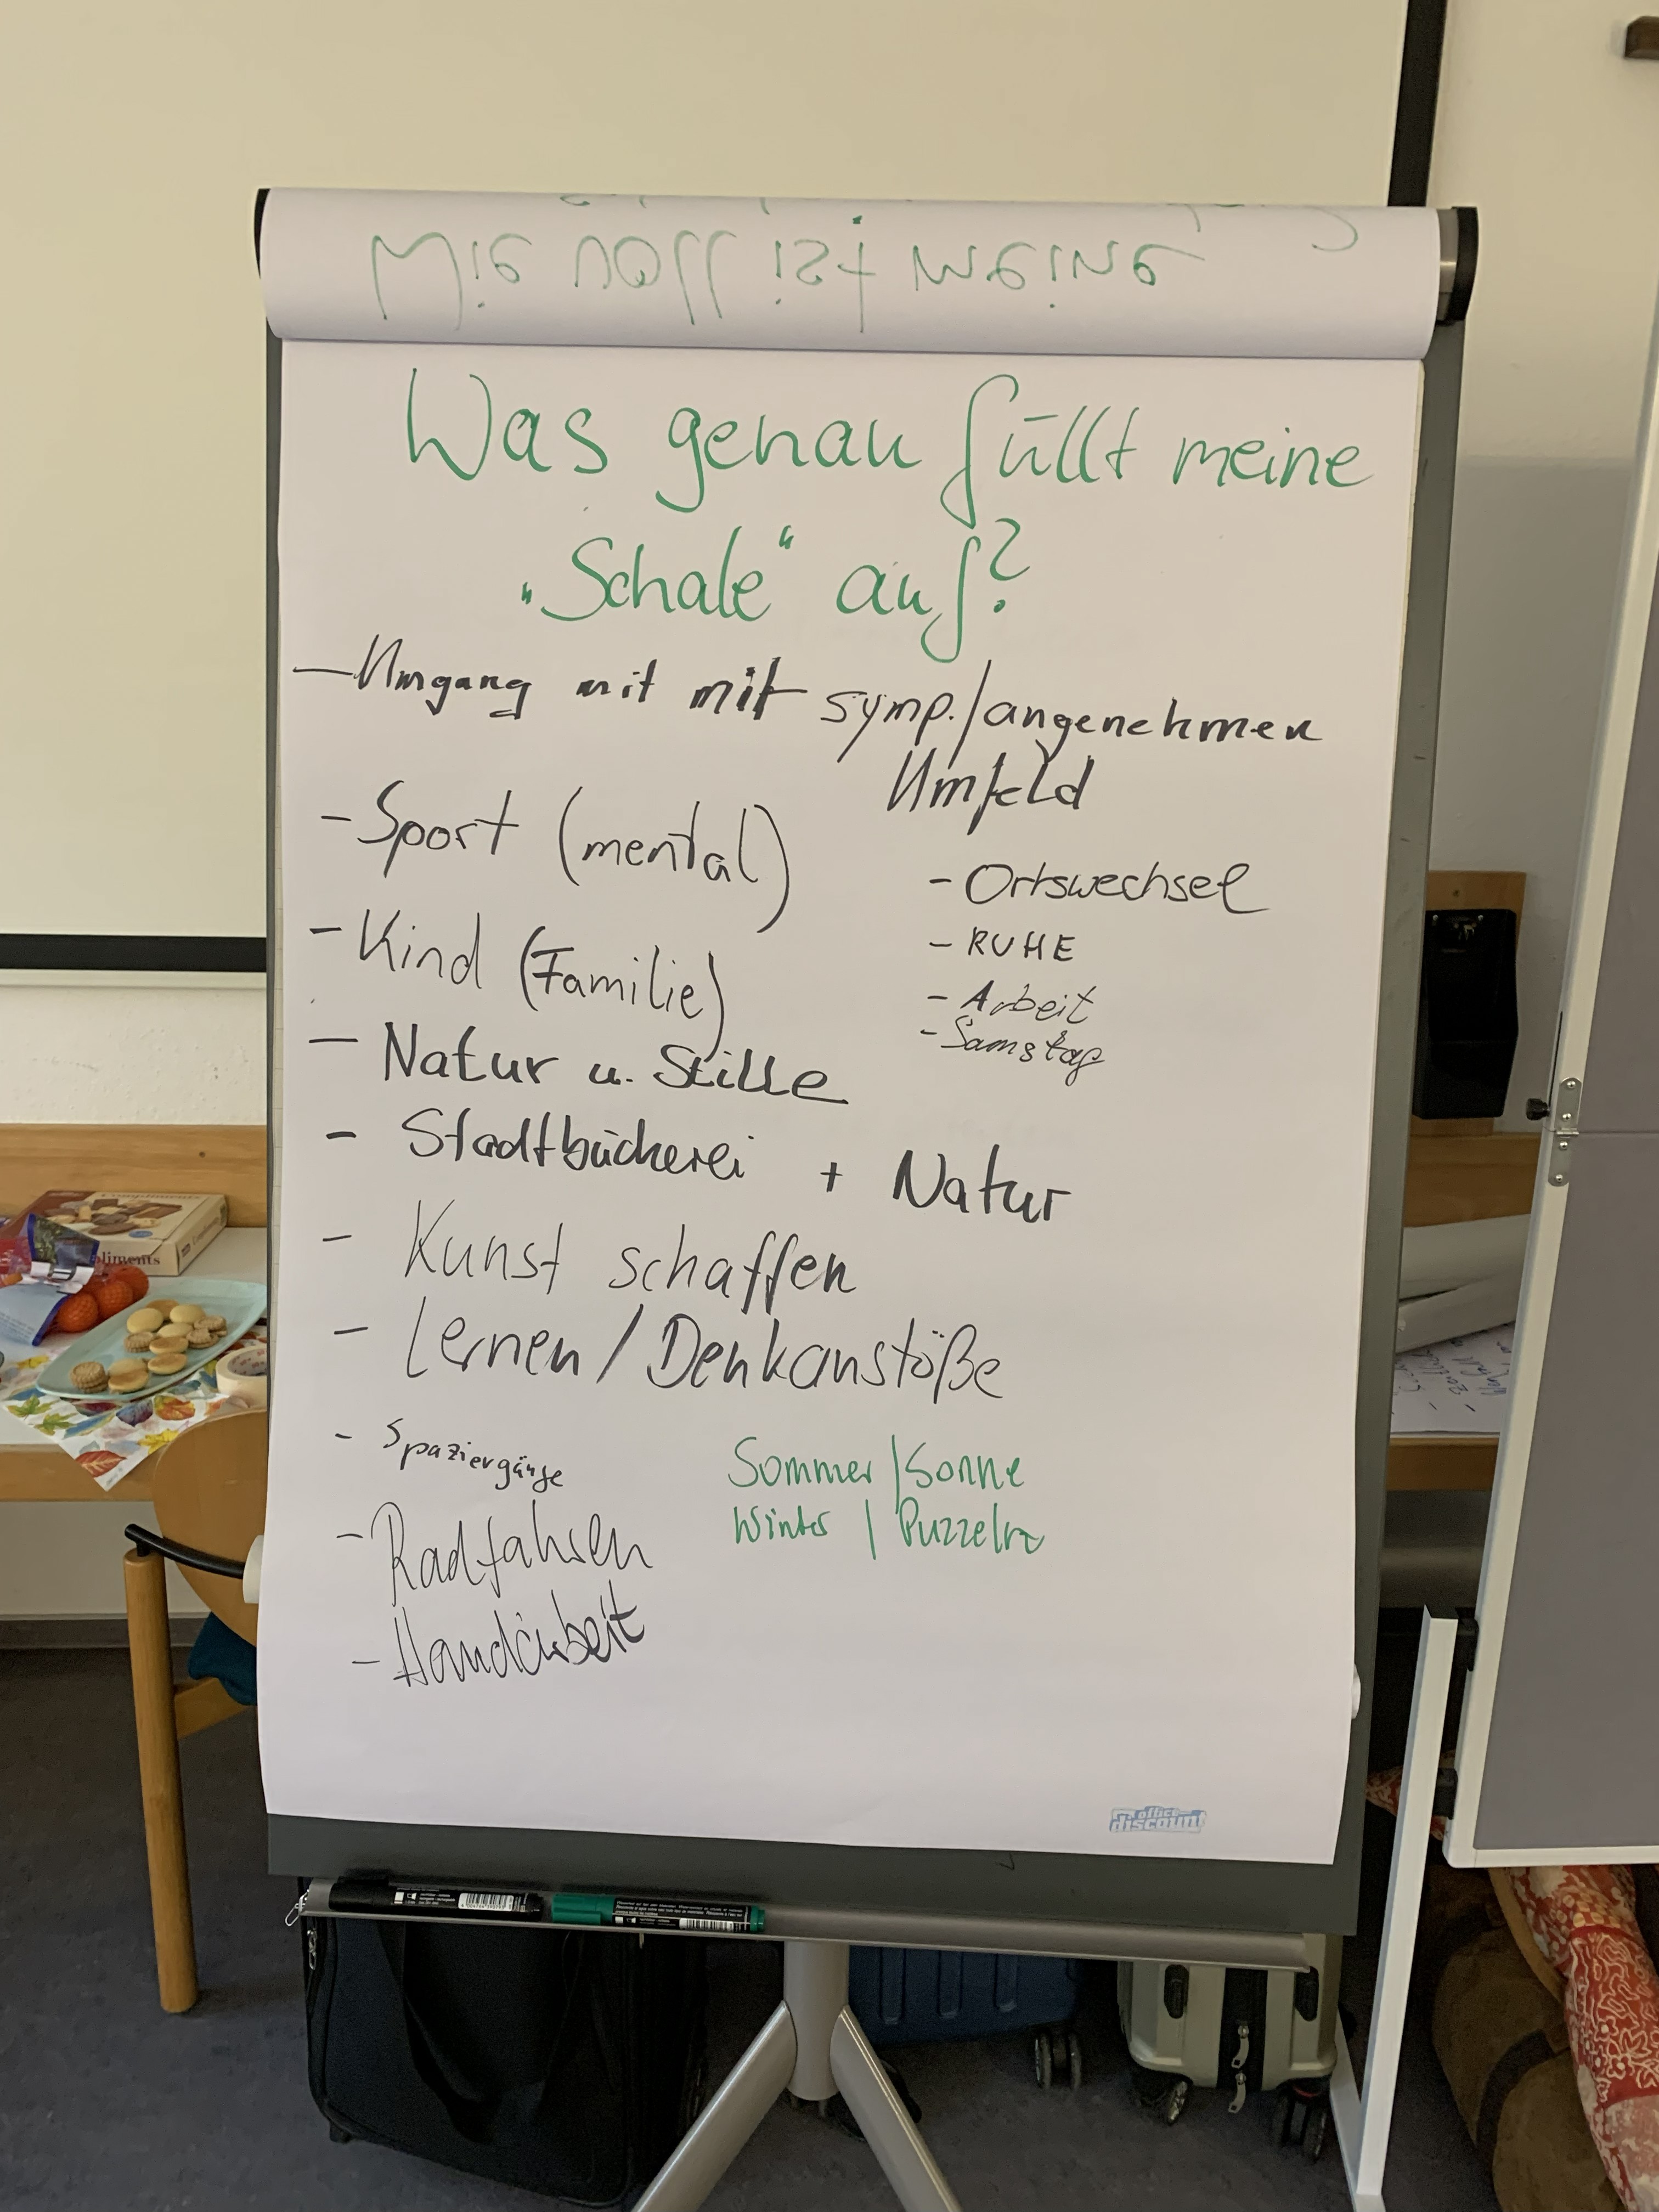 Wie voll ist meine
Was genau füllt meine
„Schale“ auf?
- Umgang mit mit symp./angenehmen
Umfeld
- Sport (mental)
- Ortswechsel
- Kind (Familie)
- RUHE
- Arbeit
- Samstag
- Natur u. Stille
- Stadtbücherei + Natur
- Kunst schaffen
- Lernen / Denkanstöße
- Spaziergänge
Sommer / Sonne
Winter | Puzzeln
- Radfahren
- Handarbeit
office
discount